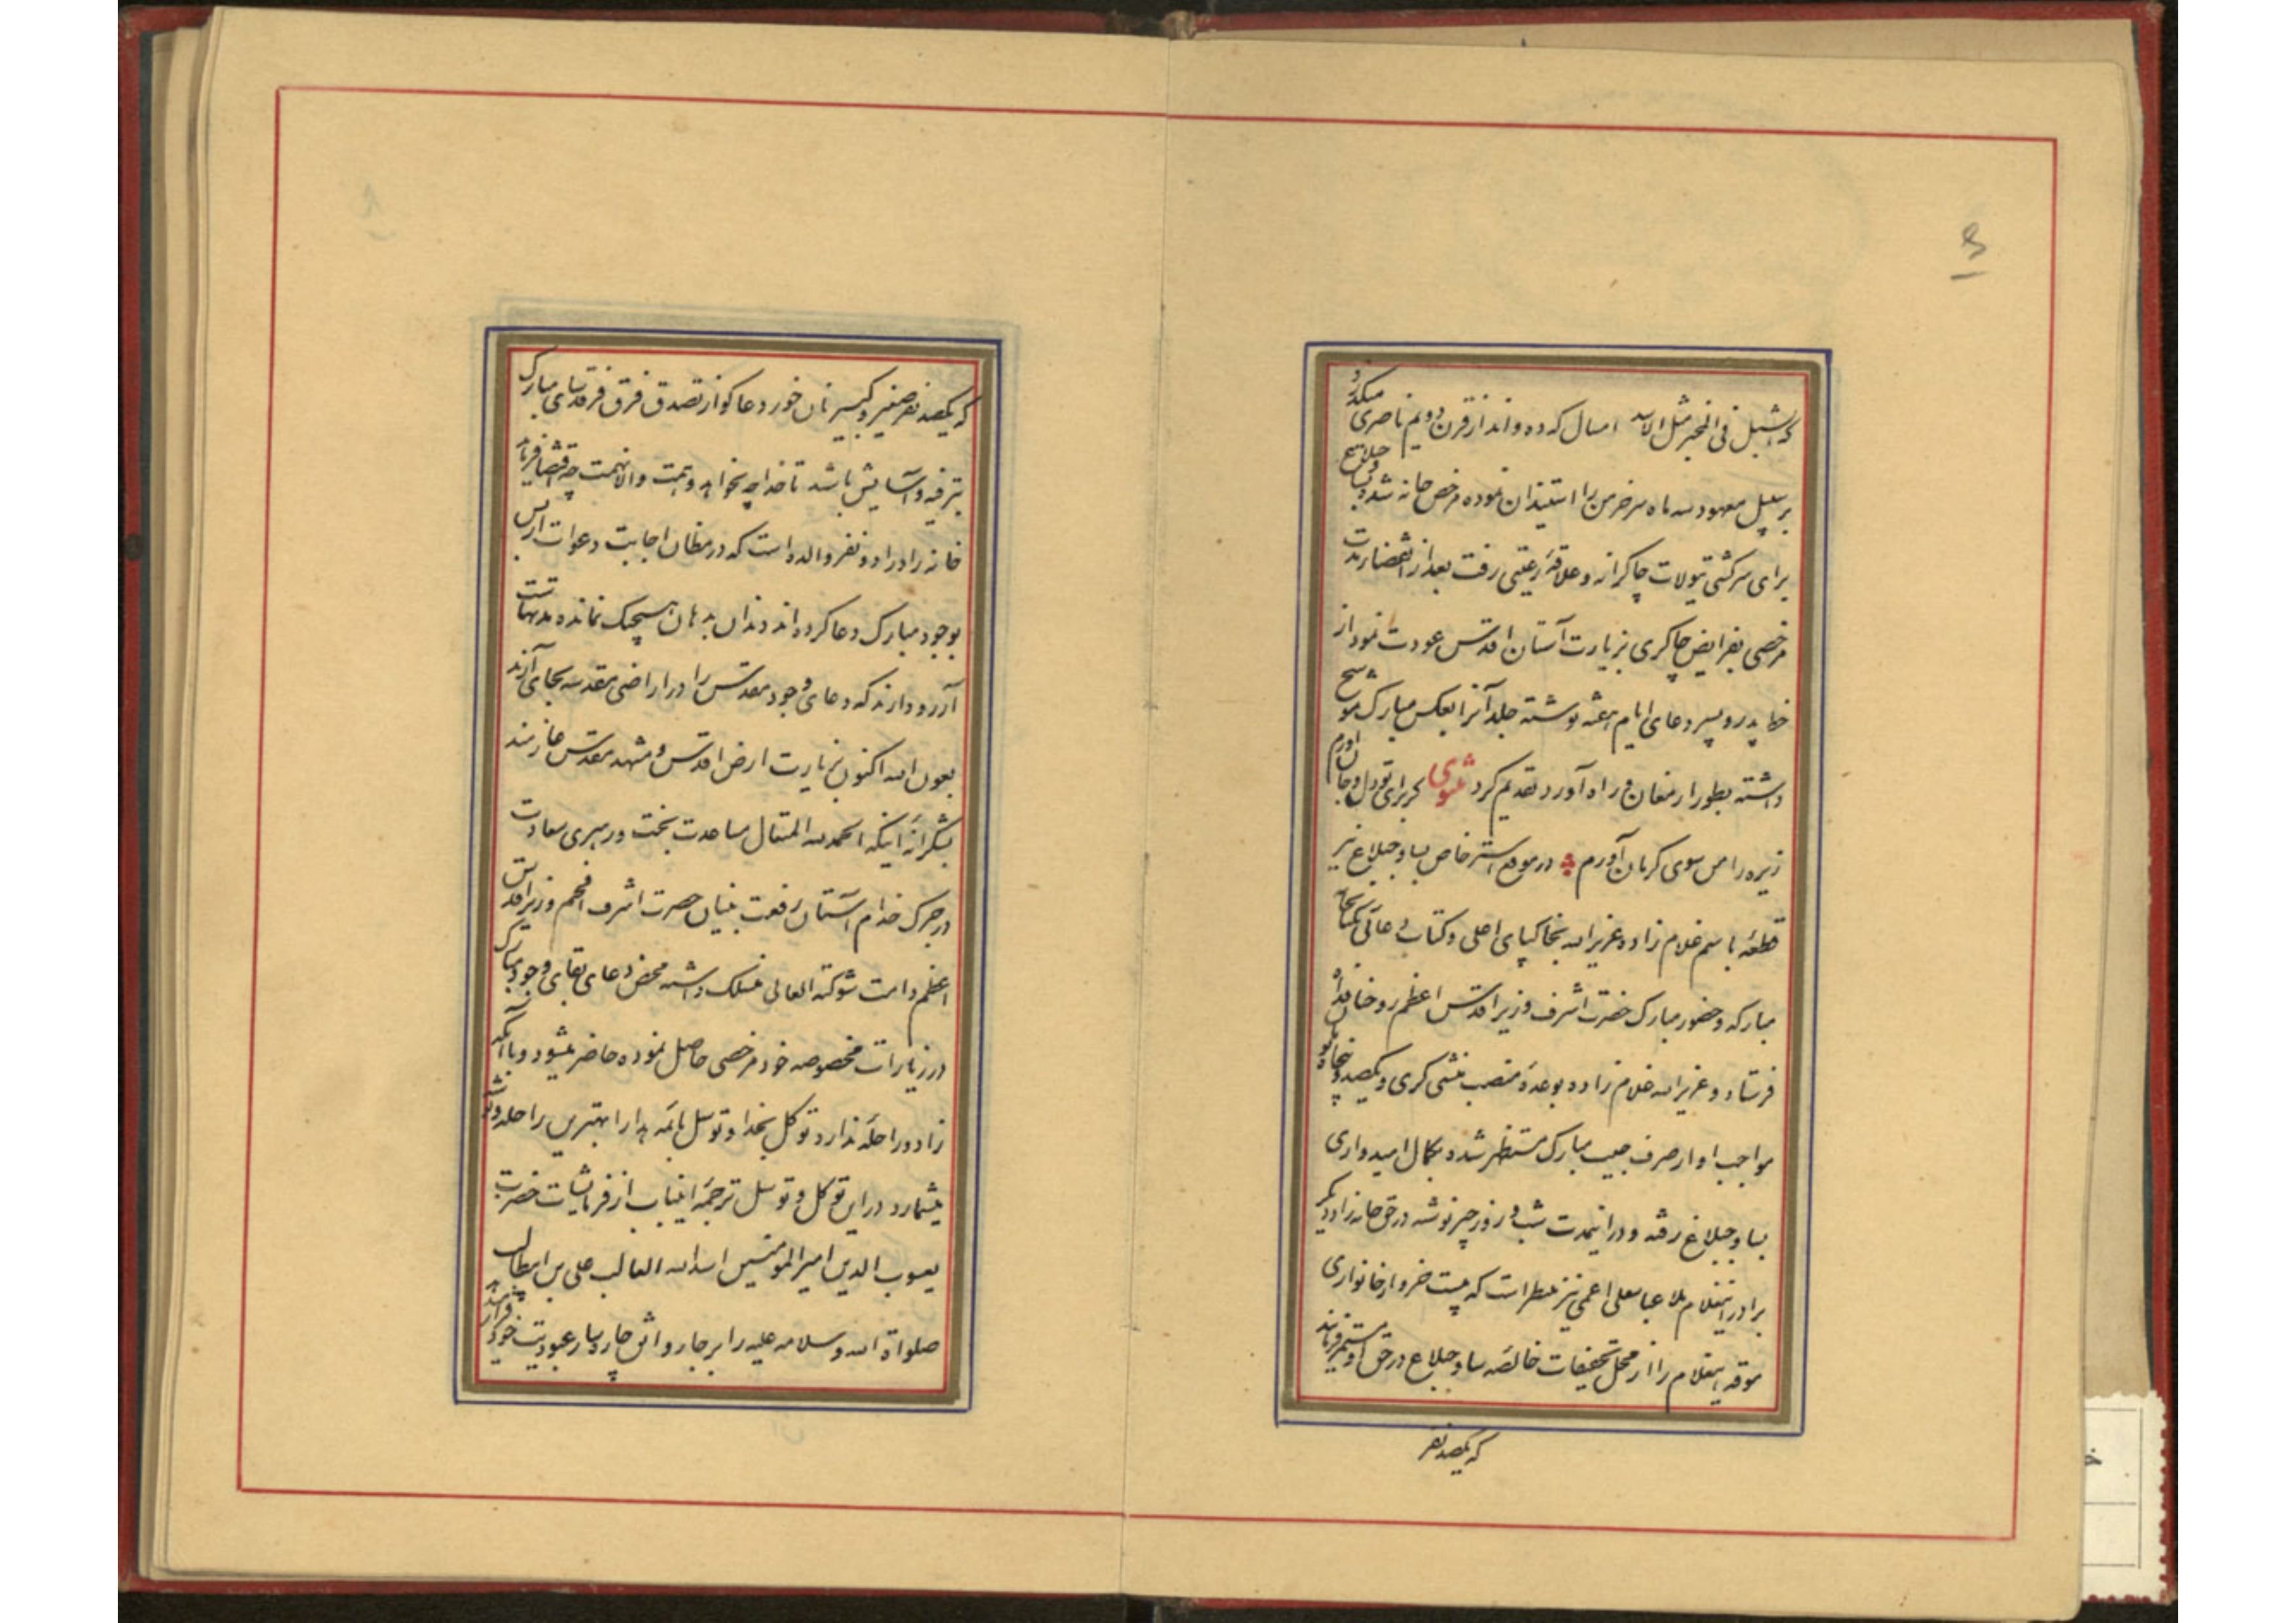 که الشبل فی المخبر مثل الاسد امسال که ده واند از قرن دویم ناصری میگذرد
بر سبیل معهود سه ماه سر خرمن را استیذان نموده مرخص خانه شد و بساوجبلاغ
برای سرکشی تیولات چاکرانه و علاقه رعیتی رفت بعد از انقضای مدت
مرخصی بفرایض چاکری بزیارت آستان اقدس عودت نمود از
خط پدر و پسر دعای ایام هفته نوشته جلد آنرا بعکس مبارک موشح
داشته بطور ارمغان و راه آورد تقدیم کرد مثنوی گر برای تو دل و جان آورم
زیره را من سوی کرمان آورم در موقع استرخاص بساوجبلاغ نیز
قطعه باسم غلام زاده عزیزالله بخاکپای اعلی و کتاب
مبارکه و حضور مبارک حضرت اشرف وزیر اقدس اعظم روحنا فداه
فرستاد و عزیزالله غلام زاده بوعده منصب منشی گری و یکصد و پنجاه
مواجب او از صرف جیب مبارک مستظهر شده بکمال امیدواری
بساوجبلاغ رفته و در اینمدت شب و روز چیز نوشته در حق خانه زاد دیگر
برادر اینغلام ملا عباسعلی اعمی نیز منتظر است که بیست خروار خانواری
موقه اینغلام را از محل تخفیفات خالصه ساوجبلاغ در حق او مستمر فرمایند
که یکصد نفر
که یکصد نفر صغیر و کبیر نان خور دعاگو از تصدق فرق فرقدسای مبارک
بترفیه و آسایش باشد تا خدا چه بخواهد و همت والا نهمت چه اقتضا فرماید
خانه زاد را دو نفر والده است که در مظان اجابت دعوات از بس
بوجود مبارک دعا کرده اند دندان بدهان هیچیک نمانده مدتهاست
آرزو دارند که دعای وجود مقدس را در اراضی مقدسه بجای آرند
بعون الله اکنون بزیارت ارض اقدس و مشهد مقدس عازمند
بشکرانه اینکه الحمد لله المتعال مساعدت بخت و رهبری سعادت
در جرک خدام آستان رفعت بنیان حضرت اشرف افخم وزیر اقدس
اعظم دامت شوکته العالی منسلک داشته محض دعای بقای وجود مبارک
در زیارات مخصوصه خود مرخصی حاصل نموده حاضر میشود و با آنکه
زاد و راحله ندارد توکل بخدا و توسل بائمه هدا را بهترین راحله و توشه
میشمارد در این توکل و توسل ترجمه اینباب از فرمایشات حضرت
یعسوب الدین امیرالمومنین اسدالله الغالب علی بن ابیطالب
صلواة الله و سلامه علیه را بر جار و اثق چاربار عبودیت خود